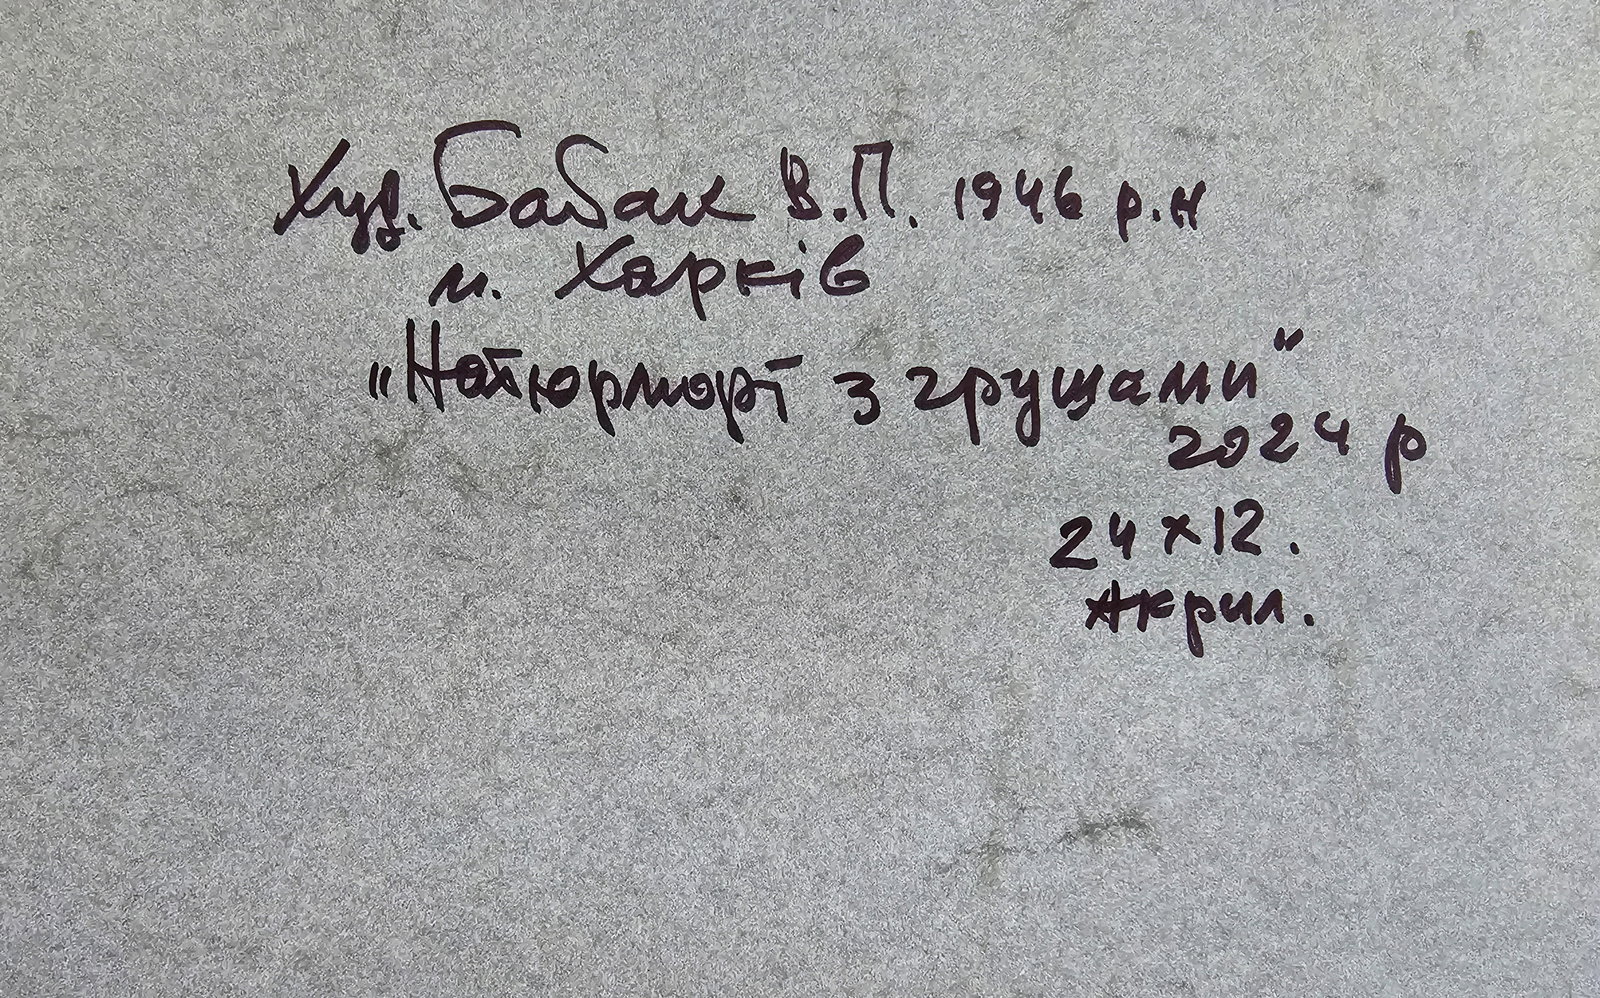 Худ. Бабак В.П. 1946 р.н
м. Харків
"Натюрморт з грушами"
2024 р
24 х 12.
Акрил.